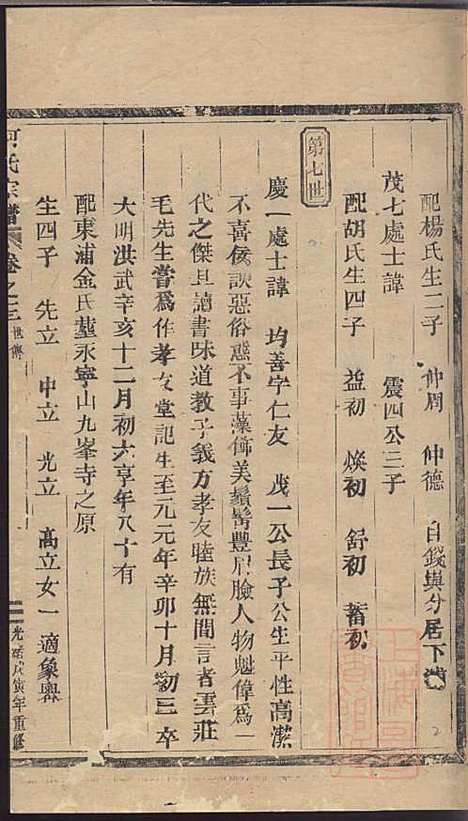 配楊氏生二子　仲周　仲德　自錢與分居下
茂七處士諱　震四公三子
配胡氏生四子　益初　煥初　舒初　蓄初
第七世
慶一處士諱　均善字仁友　茂一公長子公生平性高潔
不喜侫諛惡俗態不事藻飾美鬚髯豐頤臉人物魁偉為一
代之傑且讀書味道教子義方孝友睦族無間言者雲莊
毛先生嘗為作孝友堂記生至元元年辛卯十月初三卒
大明洪武辛亥十二月初六享年八十有
配東浦金氏塟永寧山九峯寺之原
生四子　先立　中立　光立　高立女一　適象輿
何氏宗譜　卷之三　世傳
光緒戊寅年重修